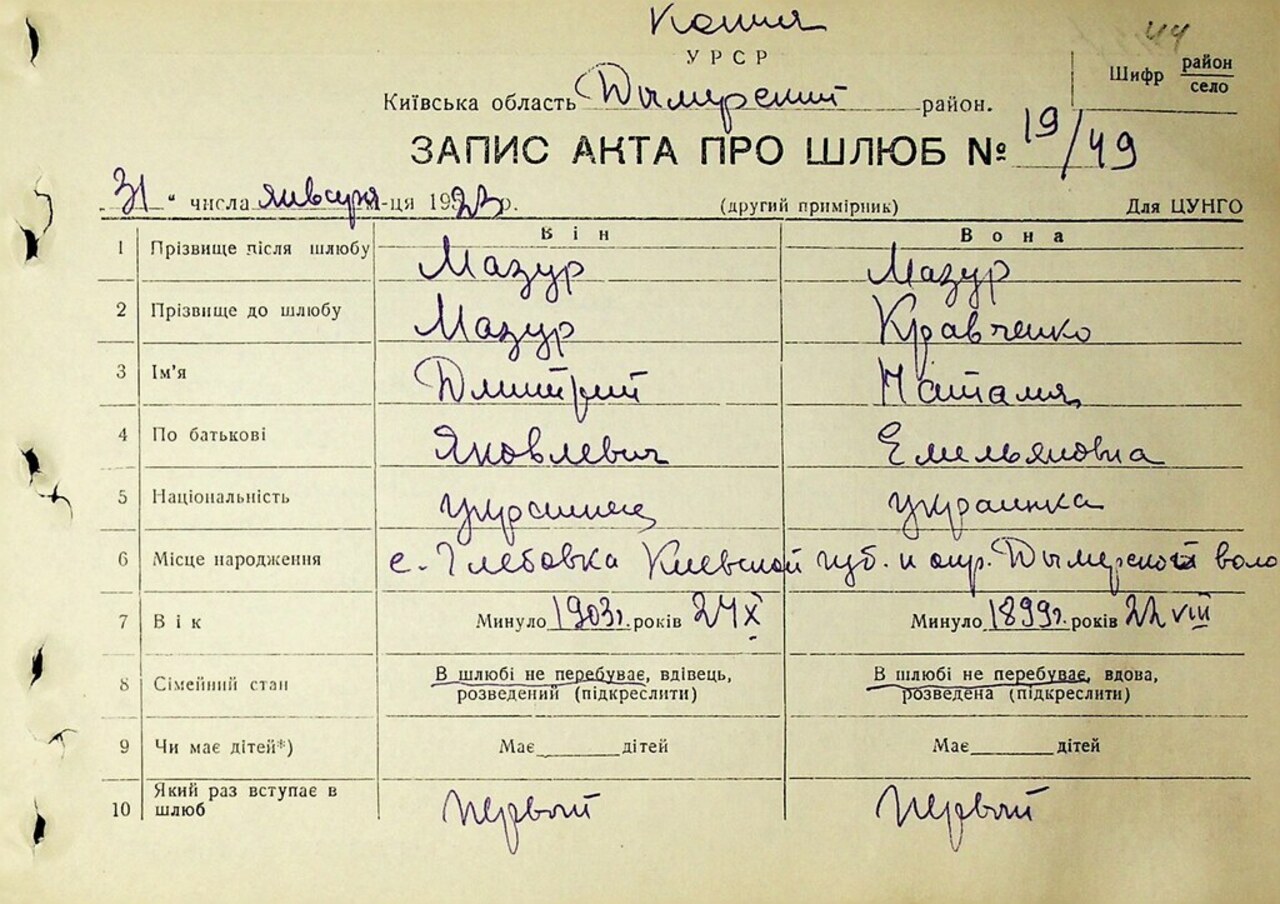 Копия 44
УРСР
Київська область Дымерский район. Шифр район село
ЗАПИС АКТА ПРО ШЛЮБ № 19/49
31 " числа января м-ця 1923 р. (другий примірник) Для ЦУНГО
Він Вона
1 Прізвище після шлюбу Мазур Мазур
2 Прізвище до шлюбу Мазур Кравченко
3 Ім'я Дмитрий Наталия
4 По батькові Яковлевич Емельяновна
5 Національність украинец украинка
6 Місце народження с. Глебовка Киевской губ. и окр. Дымерской воло
7 Вік Минуло 1903г. років 24 X Минуло 1899г. років 22 VIII
8 Сімейний стан В шлюбі не перебуває, вдівець, В шлюбі не перебуває, вдова,
розведений (підкреслити) розведена (підкреслити)
9 Чи має дітей*) Має дітей Має дітей
10 Який раз вступає в шлюб первый первый